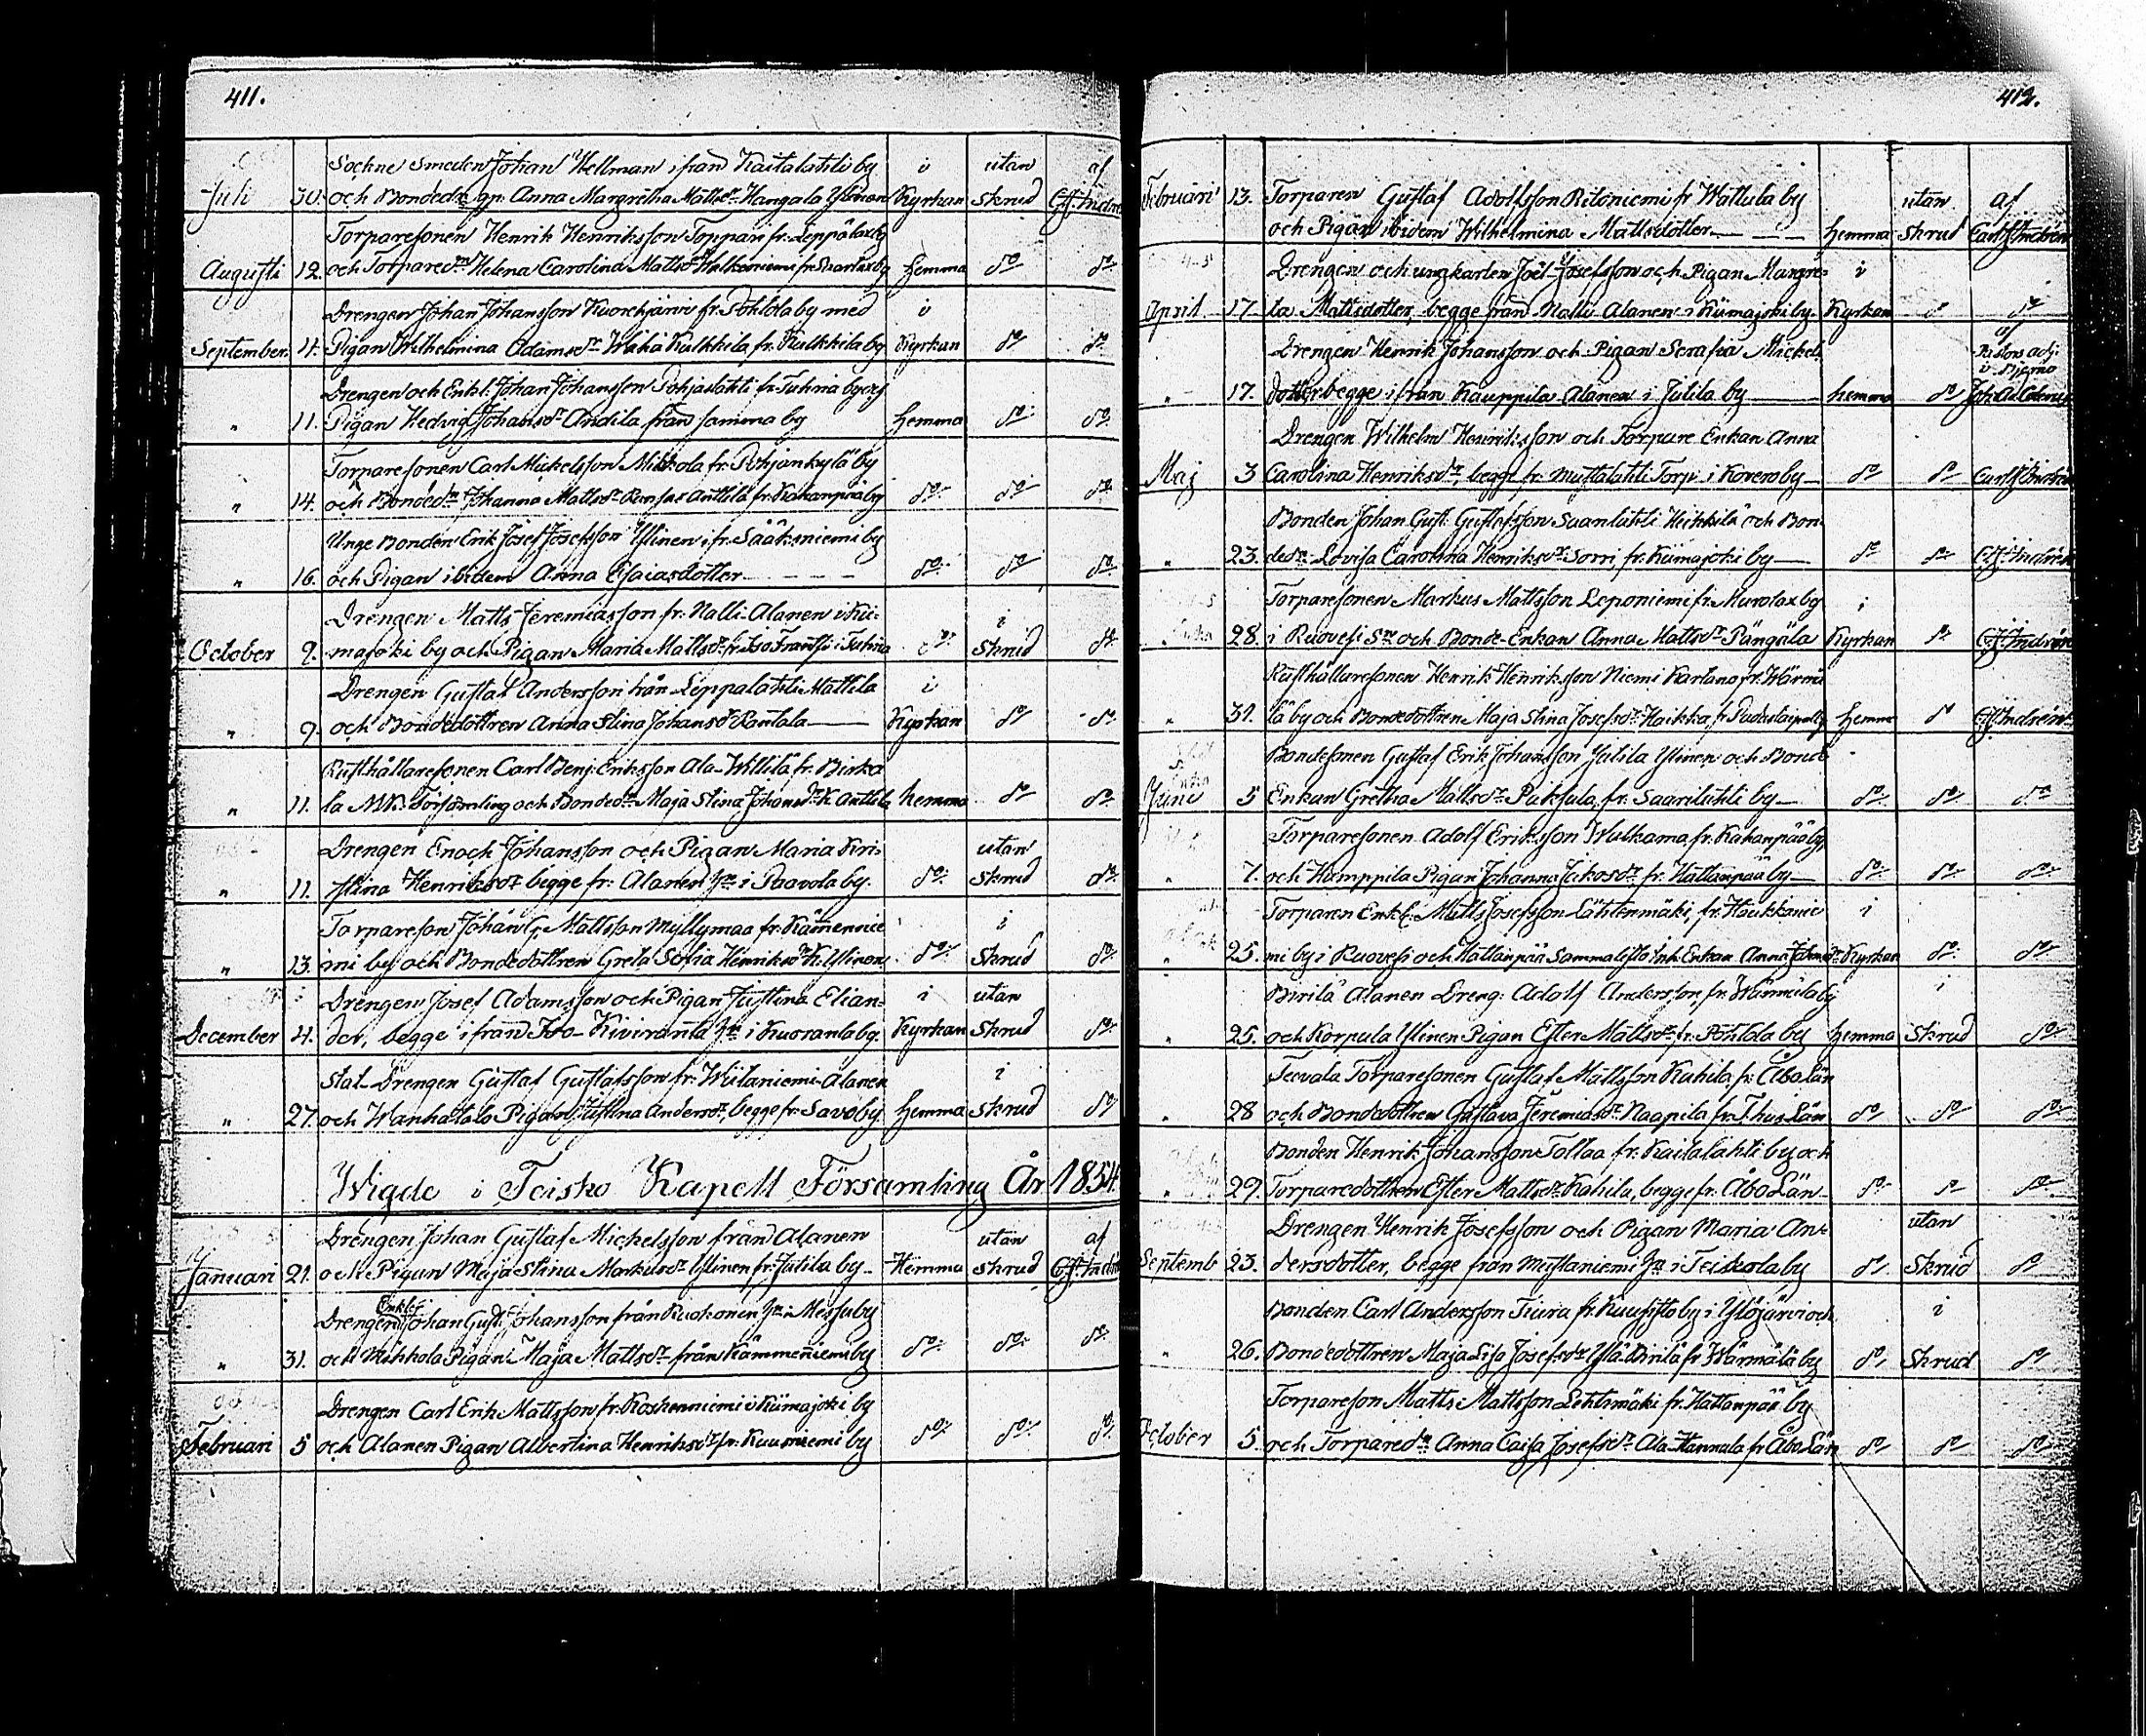 411.
Sockne Smeden Johan Hellman ifrån Kaitalahti by i utan af
Juli 30. och Bondedr Anna Margretha Mattsdr Hangala Ylinen Kyrkan skrud C.J. Indrén
Torparesonen Henrik Henriksson Toppari fr. Leppälax by
Augusti 12. och Torparedr Helena Carolina Mattsdr fr. by hemma do do
Drengen Johan Johansson Kuorehjärvi fr. Pohtola by med i
September 4. Pigan Wilhelmina Adamsdr Wähä Kulkkila fr. Kulkkila by Kyrkan do do
Drengen och Enkl. Johan Johansson Pohjaslahti fr. Tuhria by och
" 11. Pigan Hedvig Johansdr Andila från samma by hemma do do
Torparesonen Carl Mickelsson Mikkola fr. Pohjankylä by
" 14. och Bondedr Johanna Mattsdr Ransas Anttila fr. Kakanpää by do do do
Unge Bonden Erik Josef Josefsson Ylinen ifr. Sääksniemi by
" 16. och Pigan ibidem Anna Esaiasdotter do do do
Drengen Matts Jeremiasson fr. Nalli-Alanen i Kii- i
October 9. majoki by och Pigan Maria Mattsdr fr. Iso Frantsi i Tuhria do skrud do
Drengen Gustaf Andersson från Leppalahti Mattila i
" 9. och Bondedottren Anna Stina Johansdr Rantala Kyrkan do do
Rusthållaresonen Carl Benj. Eriksson Ala-Willilä fr. Birka
" 11. la M.K. Församling och Bondedr Maja Stina Johansdr K. Anttila hemma do do
Drengen Enoch Johansson och Pigan Maria Kri- utan
" 11. stina Henriksdr begge fr. Alanen i Paavola by. do skrud do
Torpareson Johan G. Mattsson Myllymaa fr. Kämmennie i
" 13. mi by och Bondedottren Greta Sofia Henriksdr K. Ylinen do skrud do
Drengen Josef Adamsson och Pigan Justina Elian- i utan
December 4. der, begge ifrån Iso-Kiviranta i Kuoranta by. Kyrkan skrud do
Stat-Drengen Gustaf Gustafsson fr. Wiitaniemi-Alanen i
" 27. och Wanhatalo Pigan Justina Andersdr, begge fr. Savo by. hemma skrud do
Wigde i Teisko Kapell Församling År 1854.
Drengen Johan Gustaf Mickelsson från Alanen utan af
Januari 21. och Pigan Maja Stina Markusdr Ylinen fr. Jutila by Hemma skrud C.J. Indrén
Enkl.
Drengen Johan Gust. Johansson från Ruokonen i Messuby
" 31. och Mikkola Pigan Maja Mattsdr från Kämmenniemi by do do do
Drengen Carl Erik Mattsson fr. Koskenniemi i Kiimajoki by
Februari 5 och Alanen Pigan Albertina Henriksdr fr. Kuusniemi by do do do
412.
Februari 13. Torparen Gustaf Adolfsson Ritoniemi fr. Wattula by utan af
och Pigan ibidem Wilhelmina Mattsdotter hemma skrud Carl J. Indrén
Drengen och ungkarlen Joël Josefsson och Pigan Margre- i
April 17. ta Mattsdotter, begge från Nalli Alanen i Kiimajoki by. Kyrkan do do
Drengen Henrik Johansson och Pigan Serafia Mickels- af Pastors adj.
" 17. dotter begge ifrån Kauppila Alanen i Jutila by hemma do
Drengen Wilhelm Henriksson och Torpare Enkan Anna
Maj 3 Carolina Henriksdr, begge fr. Mustalahti Torp i Kovero by do do Carl J. Indrén
Bonden Johan Gust. Gustafsson Saanlahti Heikkilä och Bon-
" 23. dedr Lovisa Carolina Henriksdr Sorri fr. Kiimajoki by do do C.J. Indrén
Torparesonen Markus Mattsson Leponiemi fr. Murolax by i
" 28. i Ruovesi Sn och Bonde-Enkan Anna Mattsdr Pängälä Kyrkan do C.J. Indrén
Rusthållaresonen Henrik Henriksson Niemi Kartano fr. Wärmä
" 31. lä by och Bondedottren Maja Stina Josefsdr Haikka fr. hemma do C.J. Indrén
Bondesonen Gustaf Erik Johansson Jutila Ylinen och Bonde
Juni 5 Enkan Gretha Mattsdr Paksula fr. Saarilahti by do do do
Torparesonen Adolf Eriksson Wulkama fr. Kakanpää by
" 7. och Humppila Pigan Johanna Jakosdr fr. Hattanpää by do do do
Torparen Enkl. Matts Josefsson Lähtenmäki, fr. Houkkanie i
" 25. mi by i Ruovesi och Hattanpää Sammalisto Inh. Enkan Anna Johansdr Kyrkan do do
Birilä Alanen Dreng: Adolf Andersson fr. Wärmälä by i
" 25. och Korpula Ylinen Pigan Ester Mattsdr fr. Pohtola by hemma Skrud do
Teevala Torparesonen Gustaf Mattsson Kahila fr. Åbo Län
" 28 och Bondedottren Gustava Jeremiasdr Naapila fr. T.hus Län do do do
Bonden Henrik Johansson Tollaa fr. Kaitalahti by och
" 29. Torparedottren Ester Mattsdr Kahila, begge fr. Åbo Län do do do
Drengen Henrik Josefsson och Pigan Maria An- utan
Septemb. 23. dersdotter, begge från Mustaniemi i Teiskola by do Skrud do
Bonden Carl Andersson Tiura fr. Kuusisto by i Ylöjärvi och i
" 26. Bondedottren Maja Lisa Josefsdr Ylä Birilä fr. Wärmälä by do Skrud do
Torpareson Matts Mattsson Lehtimäki fr. Hattanpää by
October 5. och Torparedr Anna Caisa Josefsdr Ala-Hannula fr. Åbo Län do do do